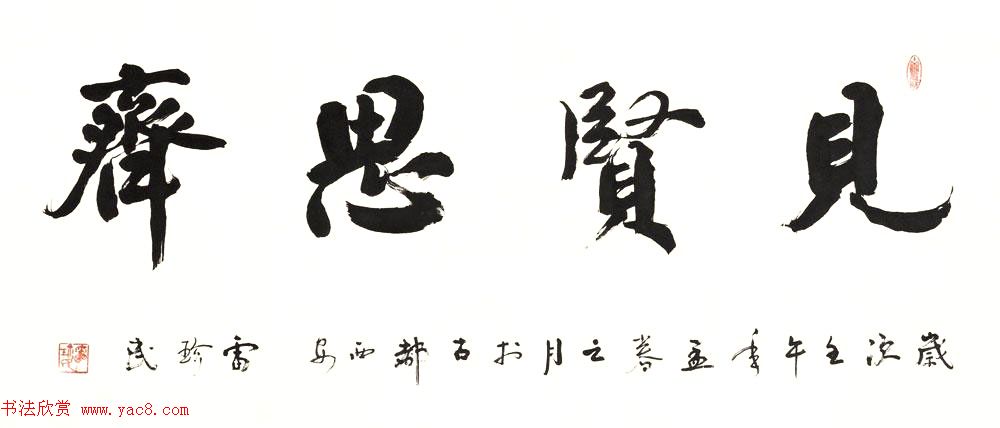 見賢思齊
歲次壬午年孟春之月於古都西安 雷珍民
书法欣赏 www.yac8.com